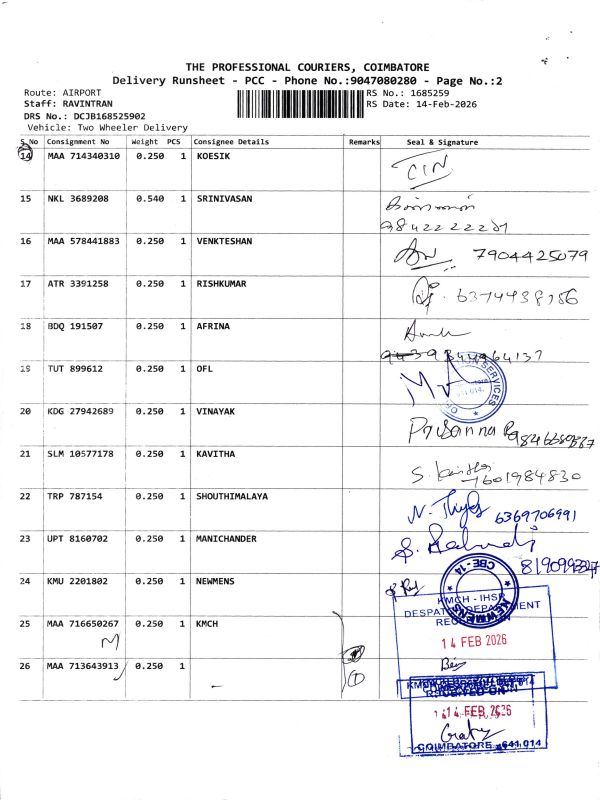 THE PROFESSIONAL COURIERS, COIMBATORE
Delivery Runsheet - PCC - Phone No.:9047080280 - Page No.:2
Route: AIRPORT
RS No.: 1685259
Staff: RAVINTRAN
RS Date: 14-Feb-2026
DRS No.: DCJB168525902
Vehicle: Two Wheeler Delivery
S.No Consignment No Weight PCS Consignee Details Remarks Seal & Signature
14 MAA 714340310 0.250 1 KOESIK
15 NKL 3689208 0.540 1 SRINIVASAN
16 MAA 578441883 0.250 1 VENKTESHAN 7904425079
17 ATR 3391258 0.250 1 RISHKUMAR
18 BDQ 191507 0.250 1 AFRINA
19 TUT 899612 0.250 1 OFL
20 KDG 27942689 0.250 1 VINAYAK
21 SLM 10577178 0.250 1 KAVITHA
7601984830
22 TRP 787154 0.250 1 SHOUTHIMALAYA
6369706991
23 UPT 8160702 0.250 1 MANICHANDER
24 KMU 2201802 0.250 1 NEWMENS
CBE-14
NEWMENS
25 MAA 716650267 0.250 1 KMCH
KMCH - IHSR
DESPATCH DEPARTMENT
14 FEB 2026
26 MAA 713643913 0.250 1
RECEIVED ON
14 FEB 2026
COIMBATORE - 641 014